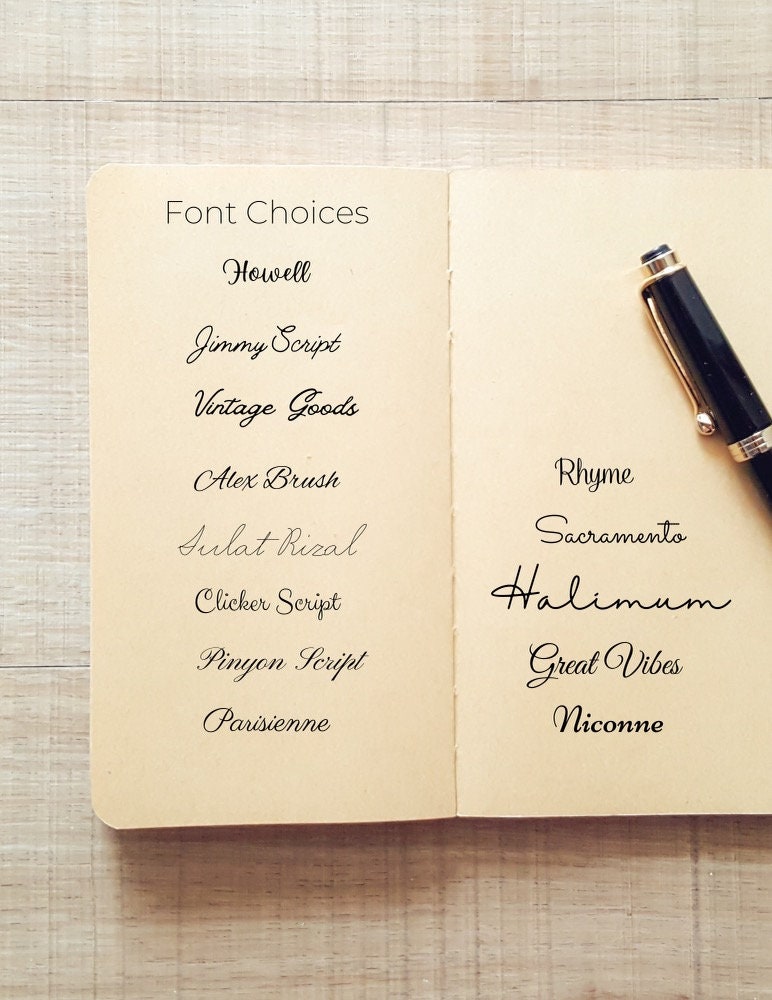 Font Choices
Howell
Jimmy Script
Vintage Goods
Alex Brush
Sulat Rizal
Clicker Script
Pinyon Script
Parisienne
Rhyme
Sacramento
Halimum
Great Vibes
Niconne